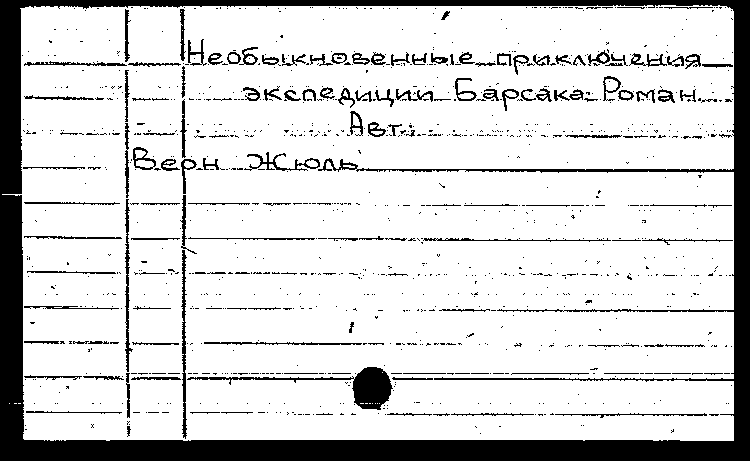 Необыкновенные приключения
экспедиции Барсака: Роман.
Авт.:
Верн Жюль